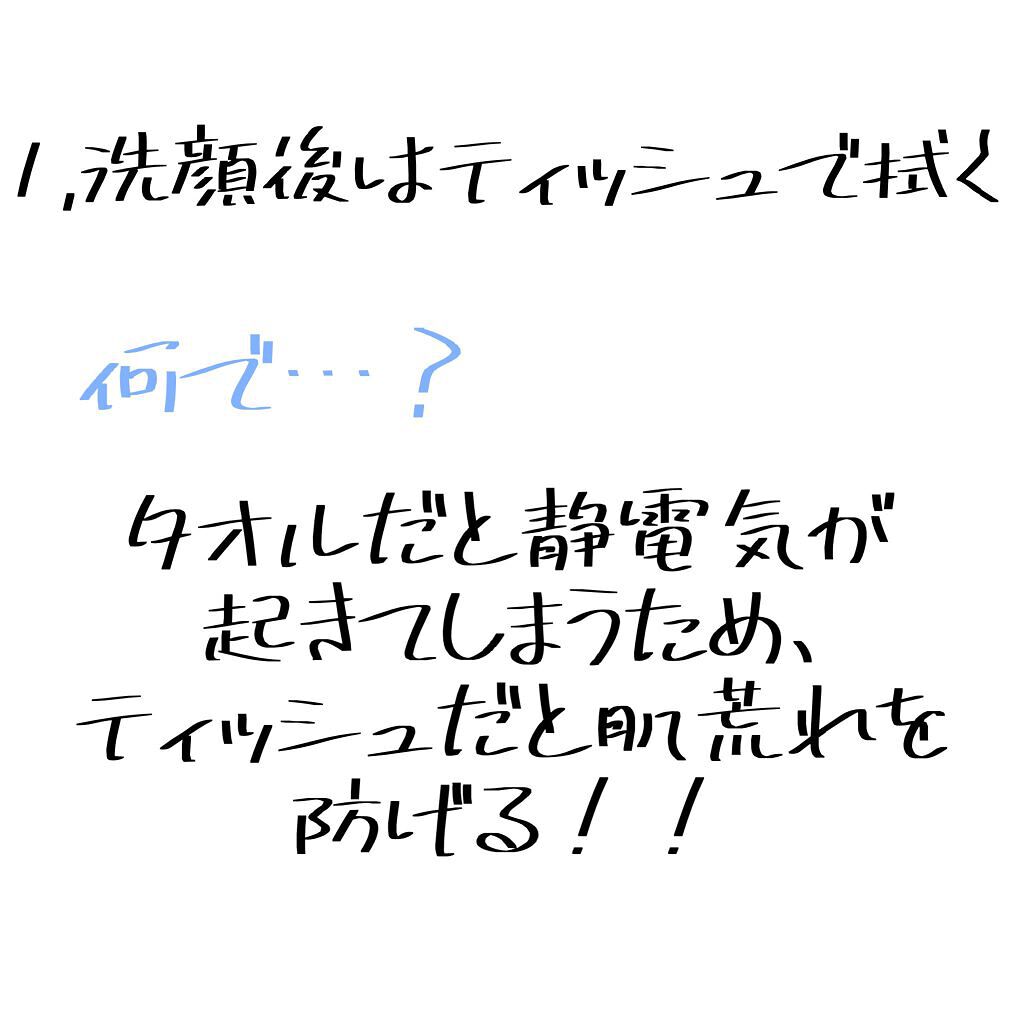 1,洗顔後はティッシュで拭く
何で…?
タオルだと静電気が
起きてしまうため、
ティッシュだと肌荒れを
防げる!!